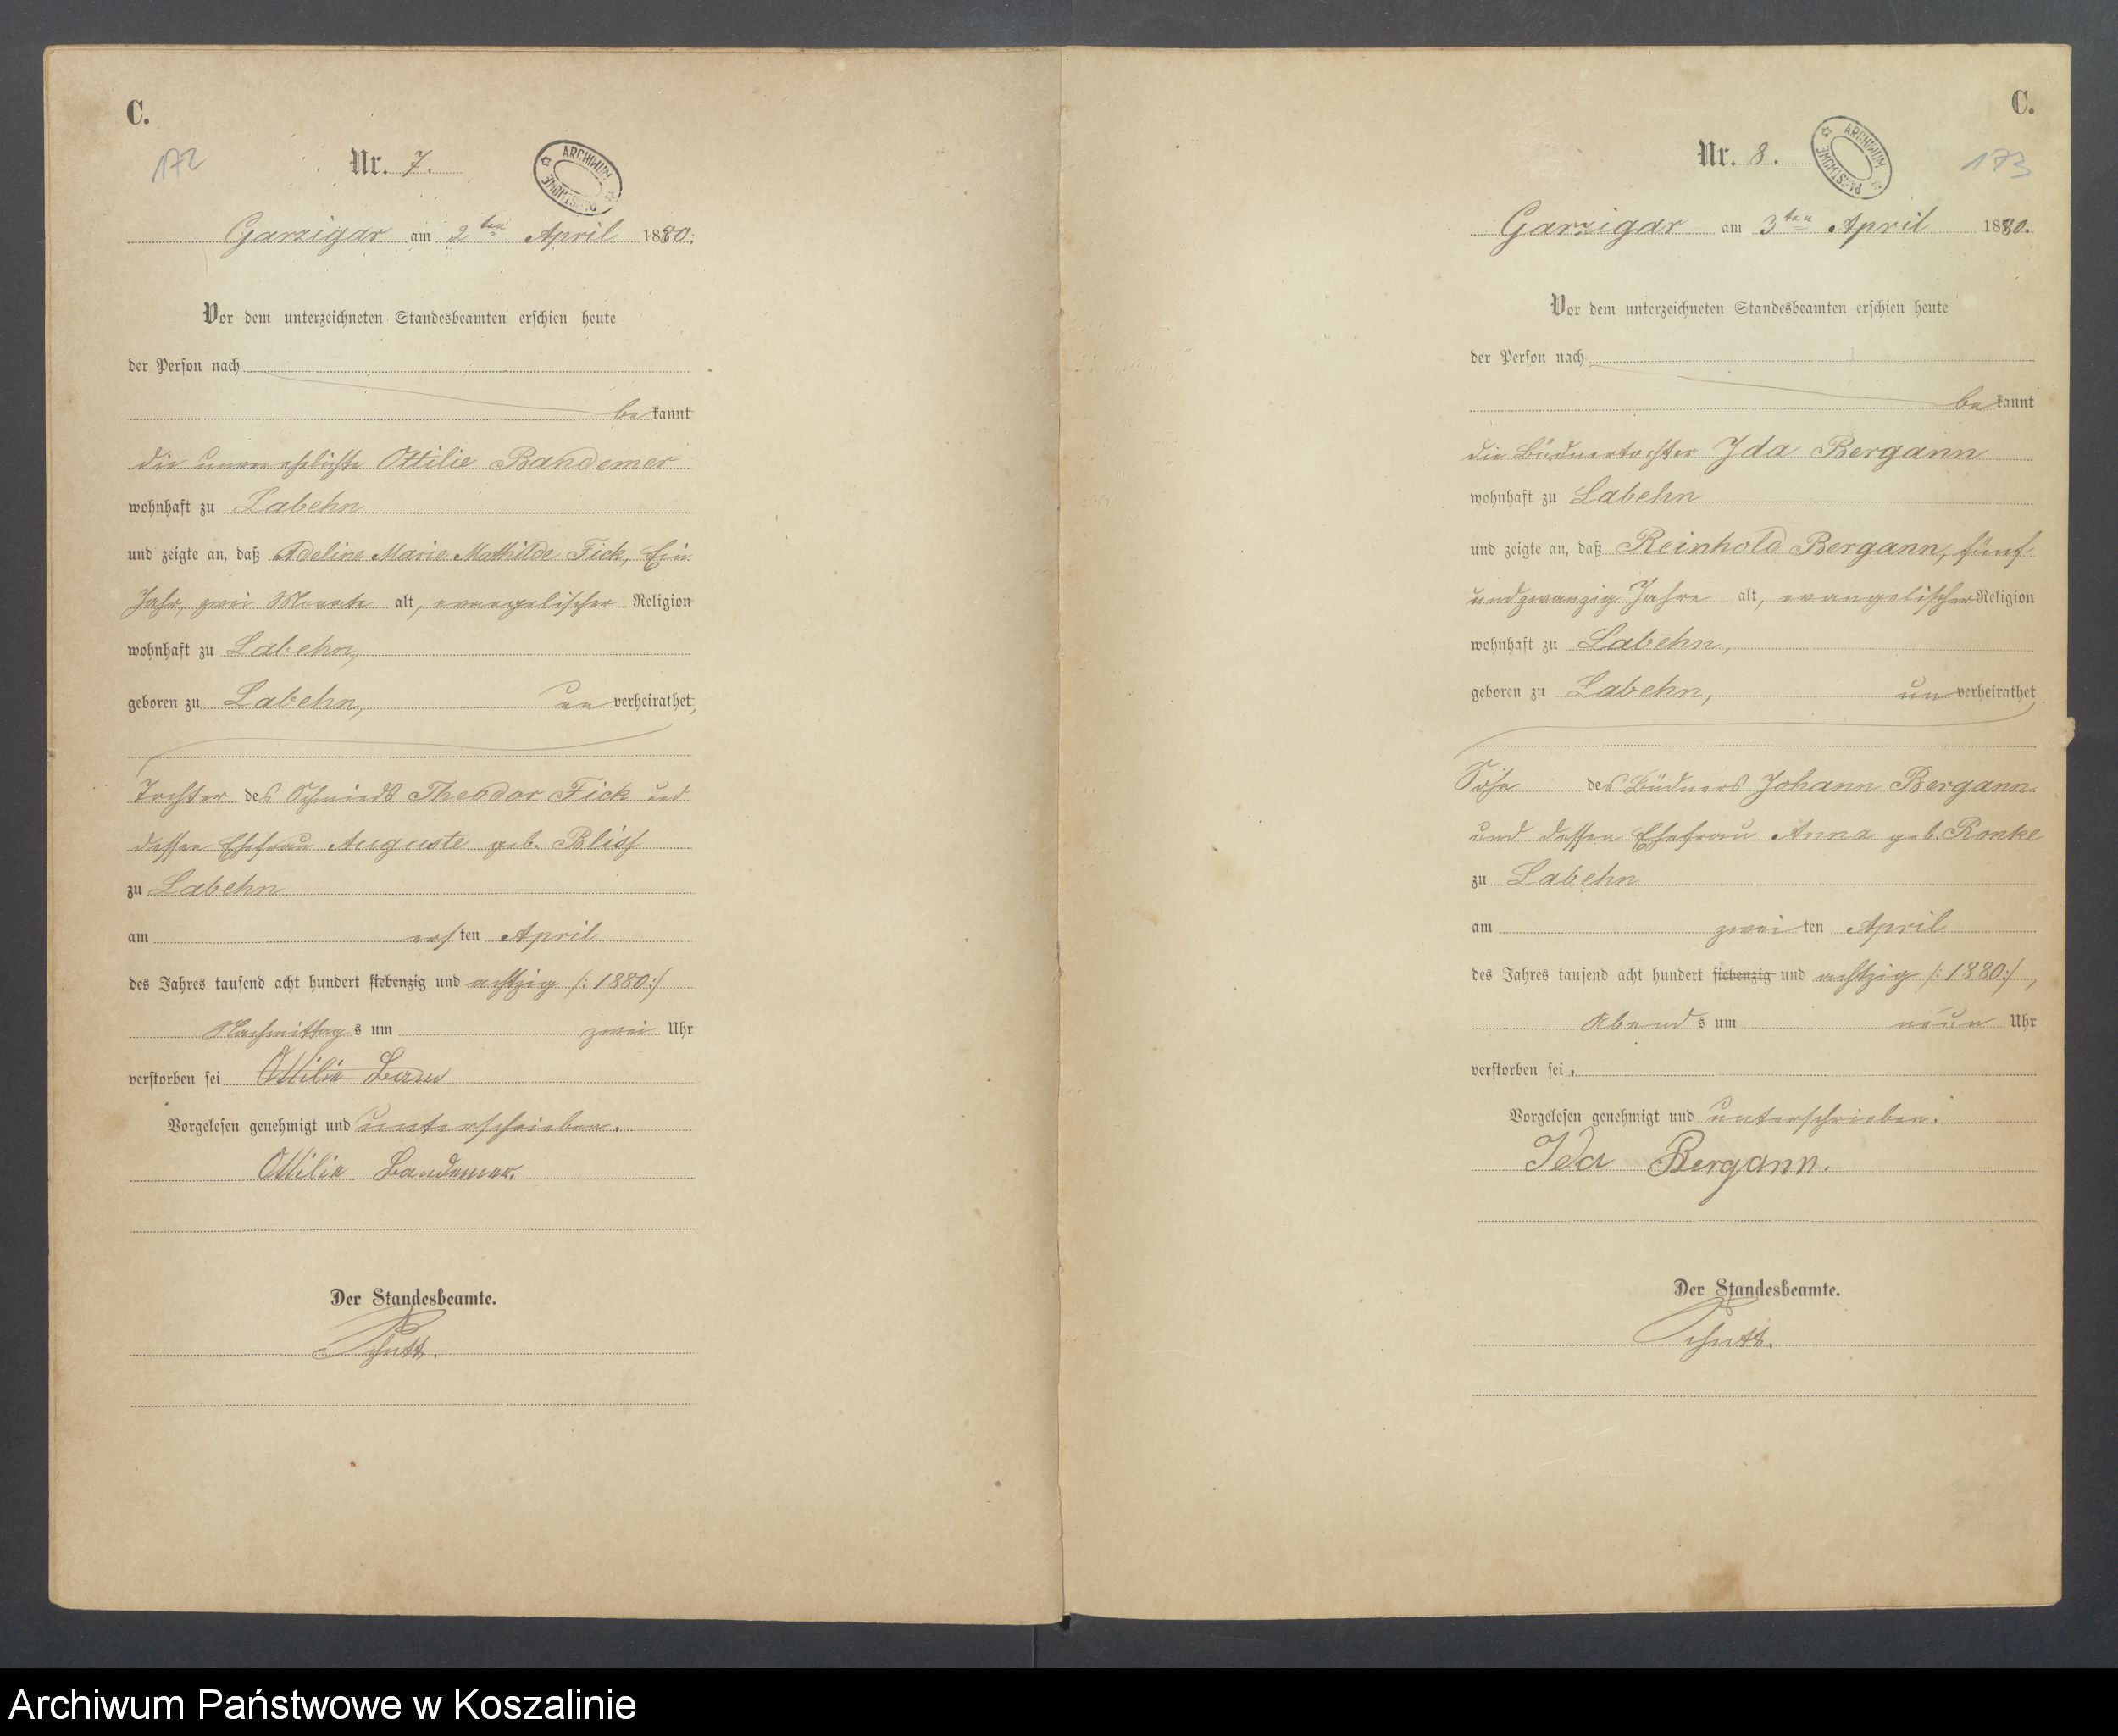 C.
172
Nr. 7.
ARCHIWUM PAŃSTWOWE
Garzigar am 2ten April 1880.
Vor dem unterzeichneten Standesbeamten erschien heute
der Person nach
bekannt
die unverehelichte Ottilie Bandemer
wohnhaft zu Labehn
und zeigte an, daß Adeline Marie Mathilde Fick, Ein
Jahr, zwei Monate alt, evangelischer Religion
wohnhaft zu Labehn,
geboren zu Labehn, unverheirathet,
Tochter des Schmieds Theodor Fick und
dessen Ehefrau Auguste geb. Bliss
zu Labehn
am ersten April
des Jahres tausend acht hundert siebenzig und achtzig /:1880:/
Nachmittags um zwei Uhr
verstorben sei Ottilie Ban
Vorgelesen genehmigt und unterschrieben.
Ottilie Bandemer.
Der Standesbeamte.
Schutt.
C.
173
Nr. 8.
ARCHIWUM PAŃSTWOWE
Garzigar am 3ten April 1880.
Vor dem unterzeichneten Standesbeamten erschien heute
der Person nach
bekannt
die Büdnertochter Ida Bergann
wohnhaft zu Labehn
und zeigte an, daß Reinhold Bergann, fünf
undzwanzig Jahre alt, evangelischer Religion
wohnhaft zu Labehn,
geboren zu Labehn, unverheirathet
Sohn des Büdners Johann Bergann
und dessen Ehefrau Anna geb. Ronke
zu Labehn
am zweiten April
des Jahres tausend acht hundert siebenzig und achtzig /:1880:/,
Abends um neun Uhr
verstorben sei.
Vorgelesen genehmigt und unterschrieben.
Ida Bergann.
Der Standesbeamte.
Schutt.
Archiwum Państwowe w Koszalinie